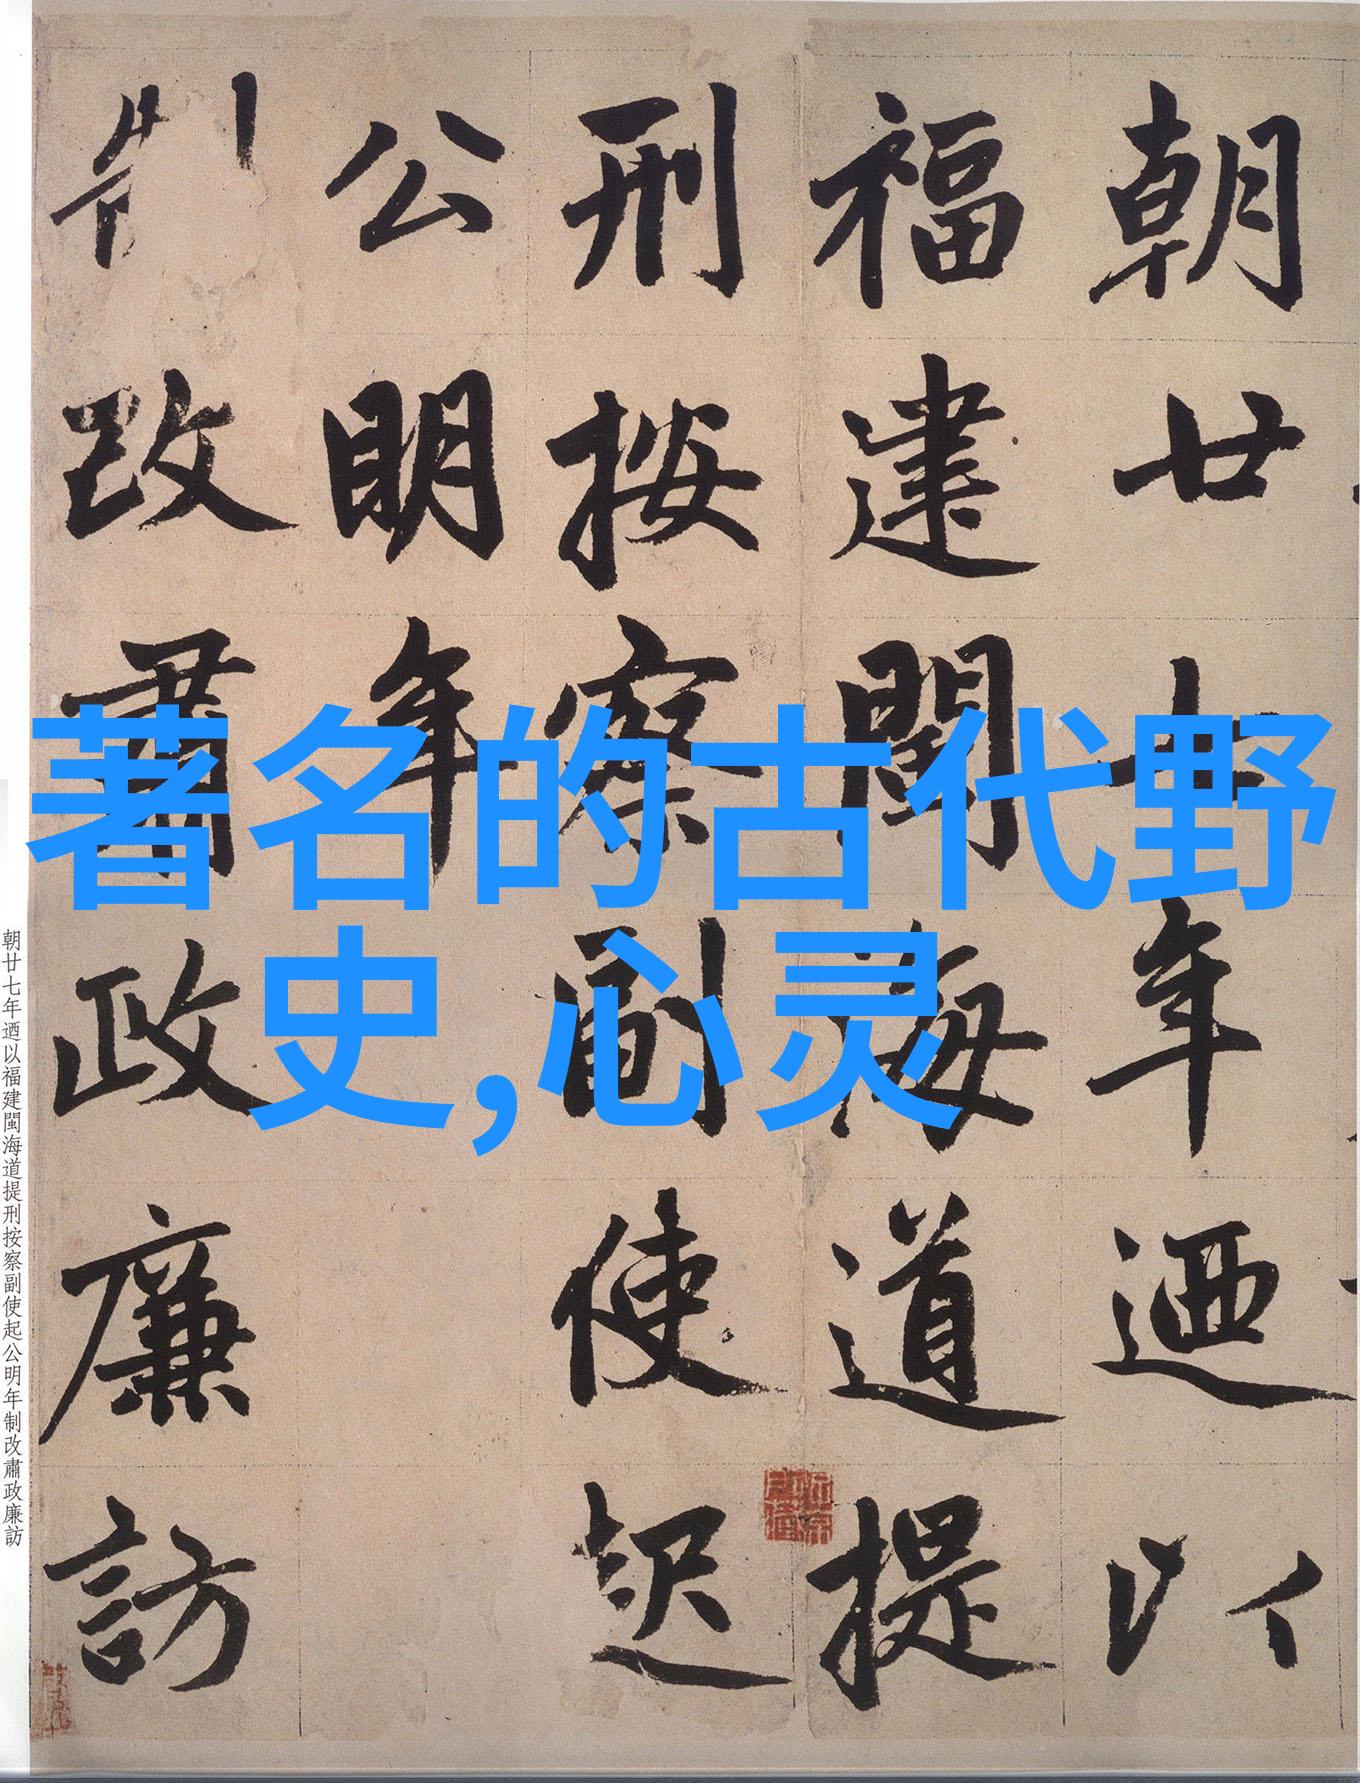 著名的古代野
史,心灵
朝廿七年迺以
福建閩海道提
刑按察副使起
公明年
制改肅政廉訪
朝廿七年迺以福建閩海道提刑按察副使起公明年制改肅政廉訪